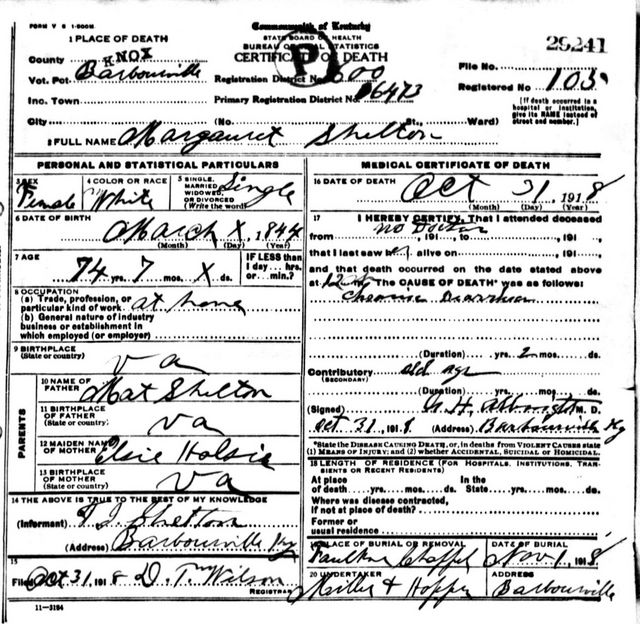 FORM V S 1-500M
Commonwealth of Kentucky
STATE BOARD OF HEALTH
BUREAU OF VITAL STATISTICS
CERTIFICATE OF DEATH
P
29241
1 PLACE OF DEATH
County KNOX
Vot. Pct. Barbourville
Inc. Town
City (No. St., Ward)
Registration District No. 600
Primary Registration District No. 6473
File No.
Registered No. 103
[If death occurred in a
hospital or institution,
give its NAME instead of
street and number.]
2 FULL NAME Margauret Shelton
PERSONAL AND STATISTICAL PARTICULARS
3 SEX
Female
4 COLOR OR RACE
White
5 SINGLE,
MARRIED,
WIDOWED,
OR DIVORCED
(Write the word)
Single
6 DATE OF BIRTH
March X, 1844
(Month) (Day) (Year)
7 AGE
74 yrs. 7 mos. X ds.
IF LESS than
1 day... hrs.
or... min.?
8 OCCUPATION
(a) Trade, profession, or
particular kind of work at home
(b) General nature of industry
business or establishment in
which employed (or employer)
9 BIRTHPLACE
(State or country)
va
PARENTS
10 NAME OF
FATHER
Mat Shelton
11 BIRTHPLACE
OF FATHER
(State or country)
va
12 MAIDEN NAME
OF MOTHER
Elsie
13 BIRTHPLACE
OF MOTHER
(State or country)
va
14 THE ABOVE IS TRUE TO THE BEST OF MY KNOWLEDGE
(Informant) Shelton
(Address) Barbourville Ky
15
Filed Oct 31, 1918 D. T. Wilson
REGISTRAR
11-3184
MEDICAL CERTIFICATE OF DEATH
16 DATE OF DEATH
Oct 31, 1918
(Month) (Day) (Year)
17 I HEREBY CERTIFY, That I attended deceased
from no Doctor, 191..., to, 191
that I last saw her alive on, 191
and that death occurred on the date stated above
at m. The CAUSE OF DEATH* was as follows:
(Duration) yrs. 2 mos. ds.
Contributory old age
(SECONDARY)
(Duration) yrs. mos. ds.
(Signed) M. D.
Oct 31, 1918 (Address) Barbourville Ky
*State the DISEASE CAUSING DEATH, or, in deaths from VIOLENT CAUSES state
(1) MEANS OF INJURY; and (2) whether ACCIDENTAL, SUICIDAL or HOMICIDAL.
18 LENGTH OF RESIDENCE (FOR HOSPITALS, INSTITUTIONS, TRANSIENTS OR RECENT RESIDENTS)
At place In the
of death yrs. mos. ds. State yrs. mos. ds.
Where was disease contracted,
if not at place of death?
Former or
usual residence
19 PLACE OF BURIAL OR REMOVAL
DATE OF BURIAL
Nov 1, 1918
20 UNDERTAKER
Miller & Hopper
ADDRESS
Barbourville